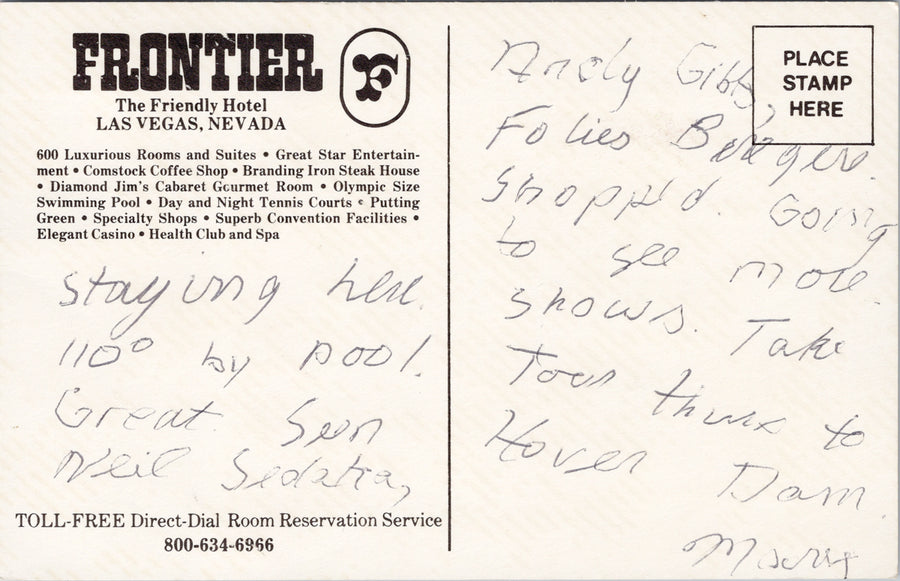 FRONTIER
F
The Friendly Hotel
LAS VEGAS, NEVADA
600 Luxurious Rooms and Suites • Great Star Entertain-
ment • Comstock Coffee Shop • Branding Iron Steak House
• Diamond Jim's Cabaret Gourmet Room • Olympic Size
Swimming Pool • Day and Night Tennis Courts • Putting
Green • Specialty Shops • Superb Convention Facilities •
Elegant Casino • Health Club and Spa
staying here.
110° by pool.
Great. Seen
Neil Sedaka,
TOLL-FREE Direct-Dial Room Reservation Service
800-634-6966
PLACE
STAMP
HERE
Andy Gibb,
Folies Bergere.
Shopp'd. Going
to see more
shows. Take
Tour to
Hover Dam